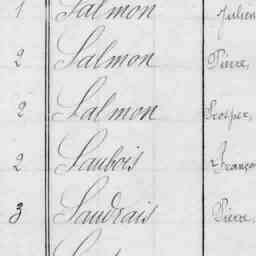 1 Salmon Julien
2 Salmon Pierre,
2 Salmon Prosper,
2 Saubois Françoi
3 Saudrais Pierre,